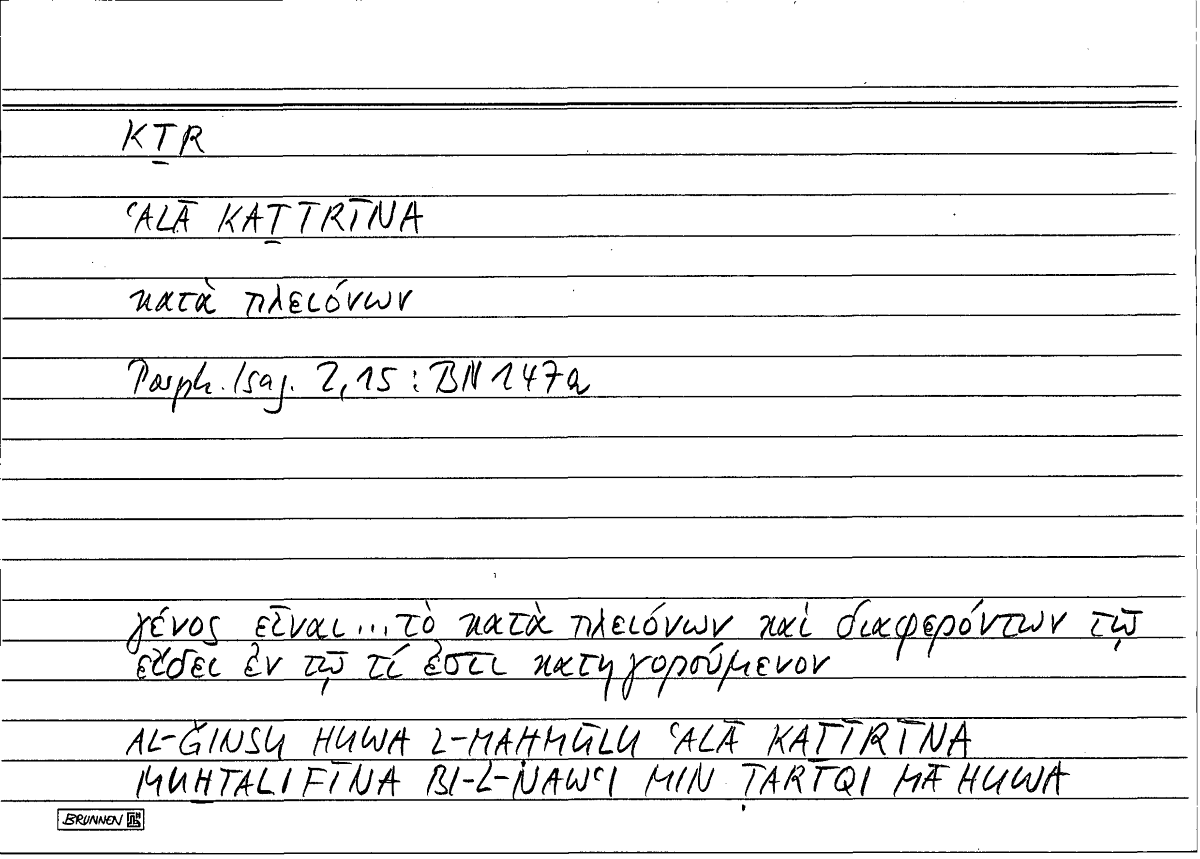 KṮR
ʿALĀ KAṮĪRĪNA
κατὰ πλειόνων
Porph. Isag. 2,15 : BN 147a
γένος εἶναι ... τὸ κατὰ πλειόνων καὶ διαφερόντων τῷ
εἴδει ἐν τῷ τί ἐστι κατηγορούμενον
AL-ǦINSU HUWA L-MAḤMŪLU ʿALĀ KAṮĪRĪNA
MUH̱TALIFĪNA BI-L-NAWʿI MIN ṬARĪQI MĀ HUWA
BRUNNEN